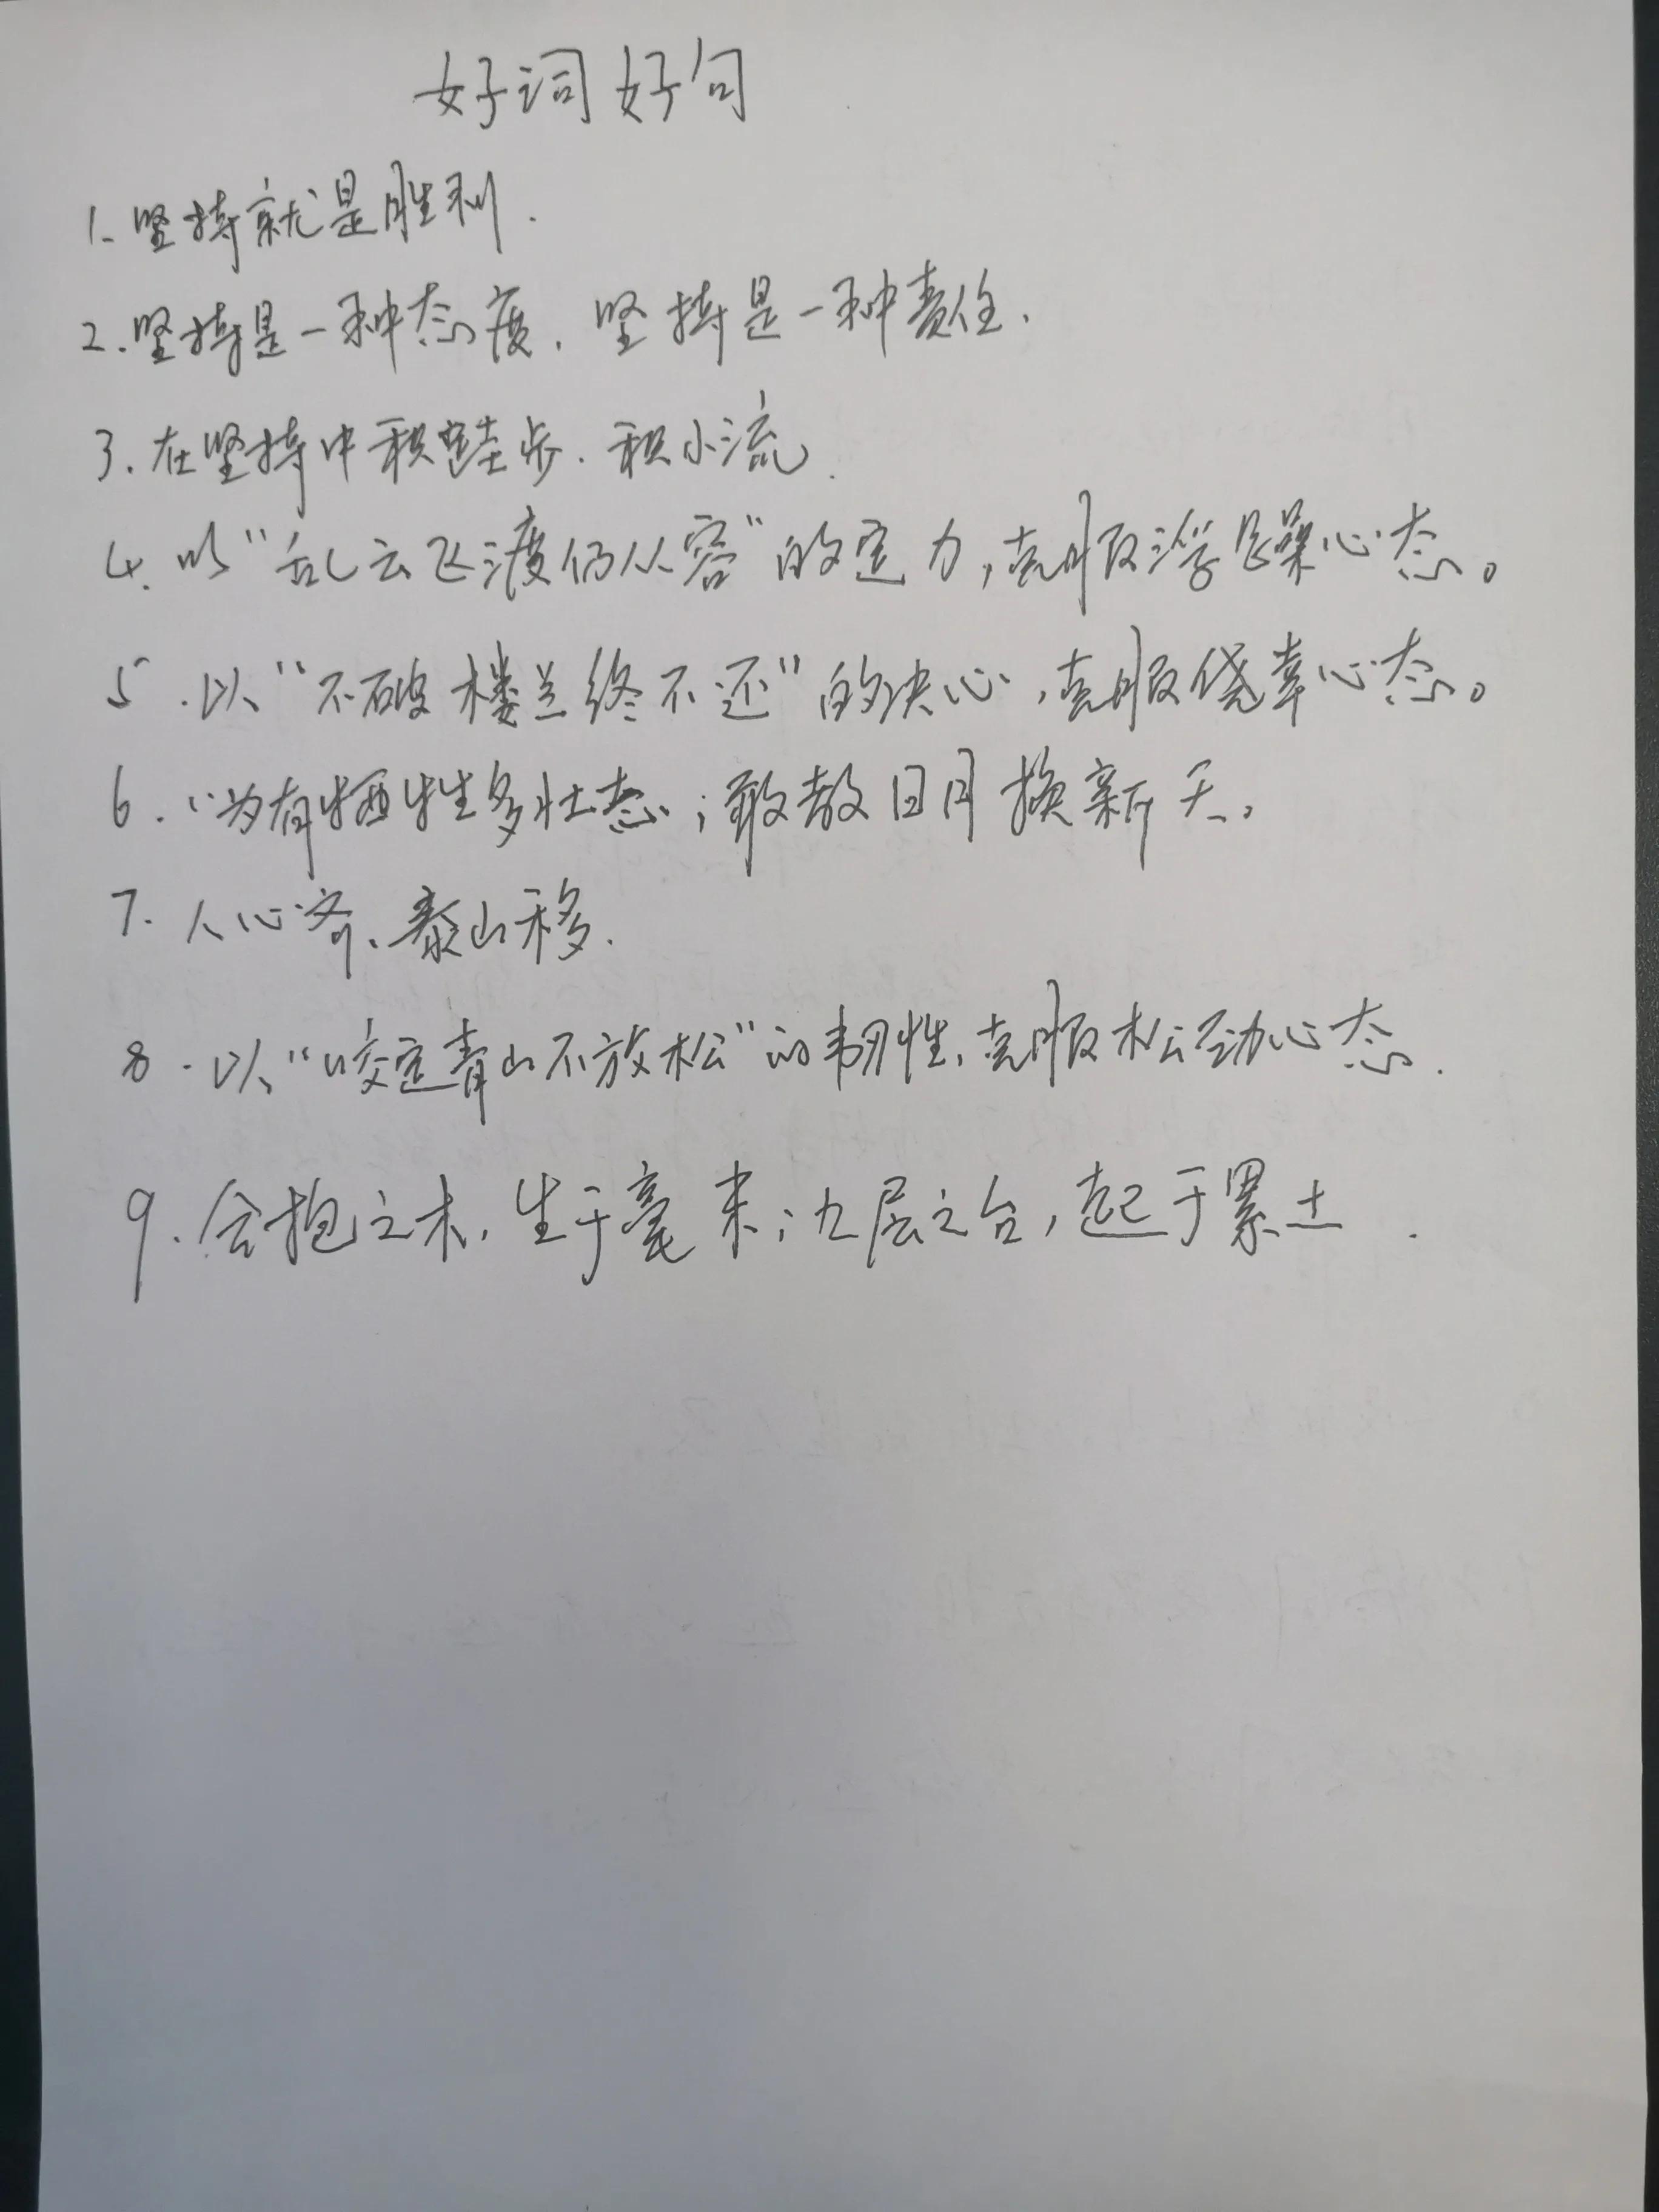 好词好句
1. 坚持就是胜利.
2. 坚持是一种态度, 坚持是一种责任.
3. 在坚持中积跬步. 积小流.
4. 以“乱云飞渡仍从容”的定力,克服浮躁心态。
5. 以“不破楼兰终不还”的决心,克服侥幸心态。
6. “为有牺牲多壮志;敢教日月换新天。
7. 人心齐、泰山移.
8. 以“咬定青山不放松”的韧性,克服松动心态.
9. 合抱之木,生于毫末;九层之台,起于累土.